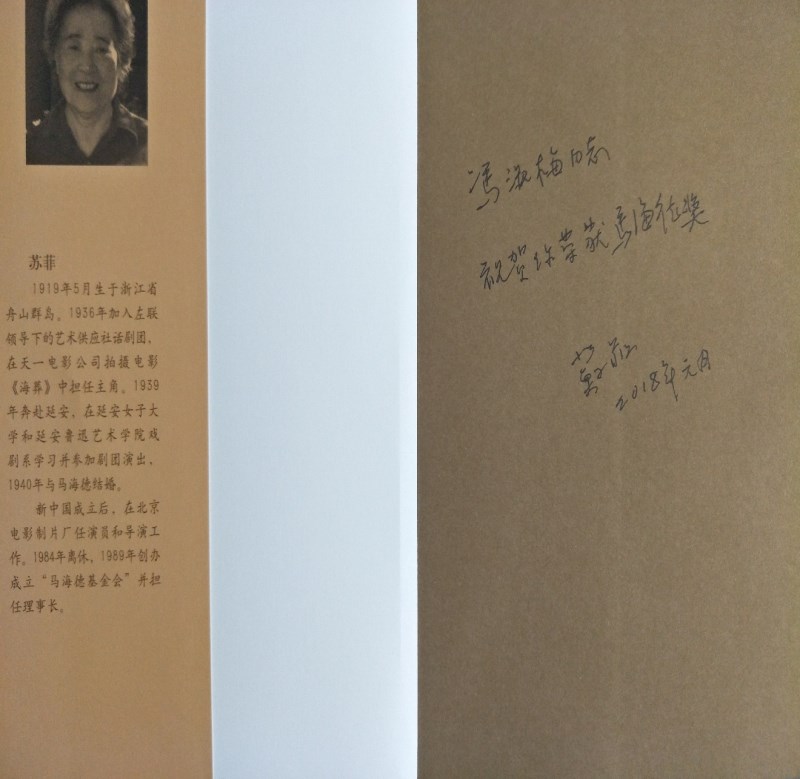 苏菲
1919年5月生于浙江省
舟山群岛。1936年加入左联
领导下的艺术供应社话剧团,
在天一电影公司拍摄电影
《海葬》中担任主角。1939
年奔赴延安,在延安女子大
学和延安鲁迅艺术学院戏
剧系学习并参加剧团演出,
1940年与马海德结婚。
新中国成立后,在北京
电影制片厂任演员和导演工
作。1984年离休,1989年创办
成立“马海德基金会”并担
任理事长。
冯淑梅同志
祝贺你荣获马海德奖
苏菲
2018年元月